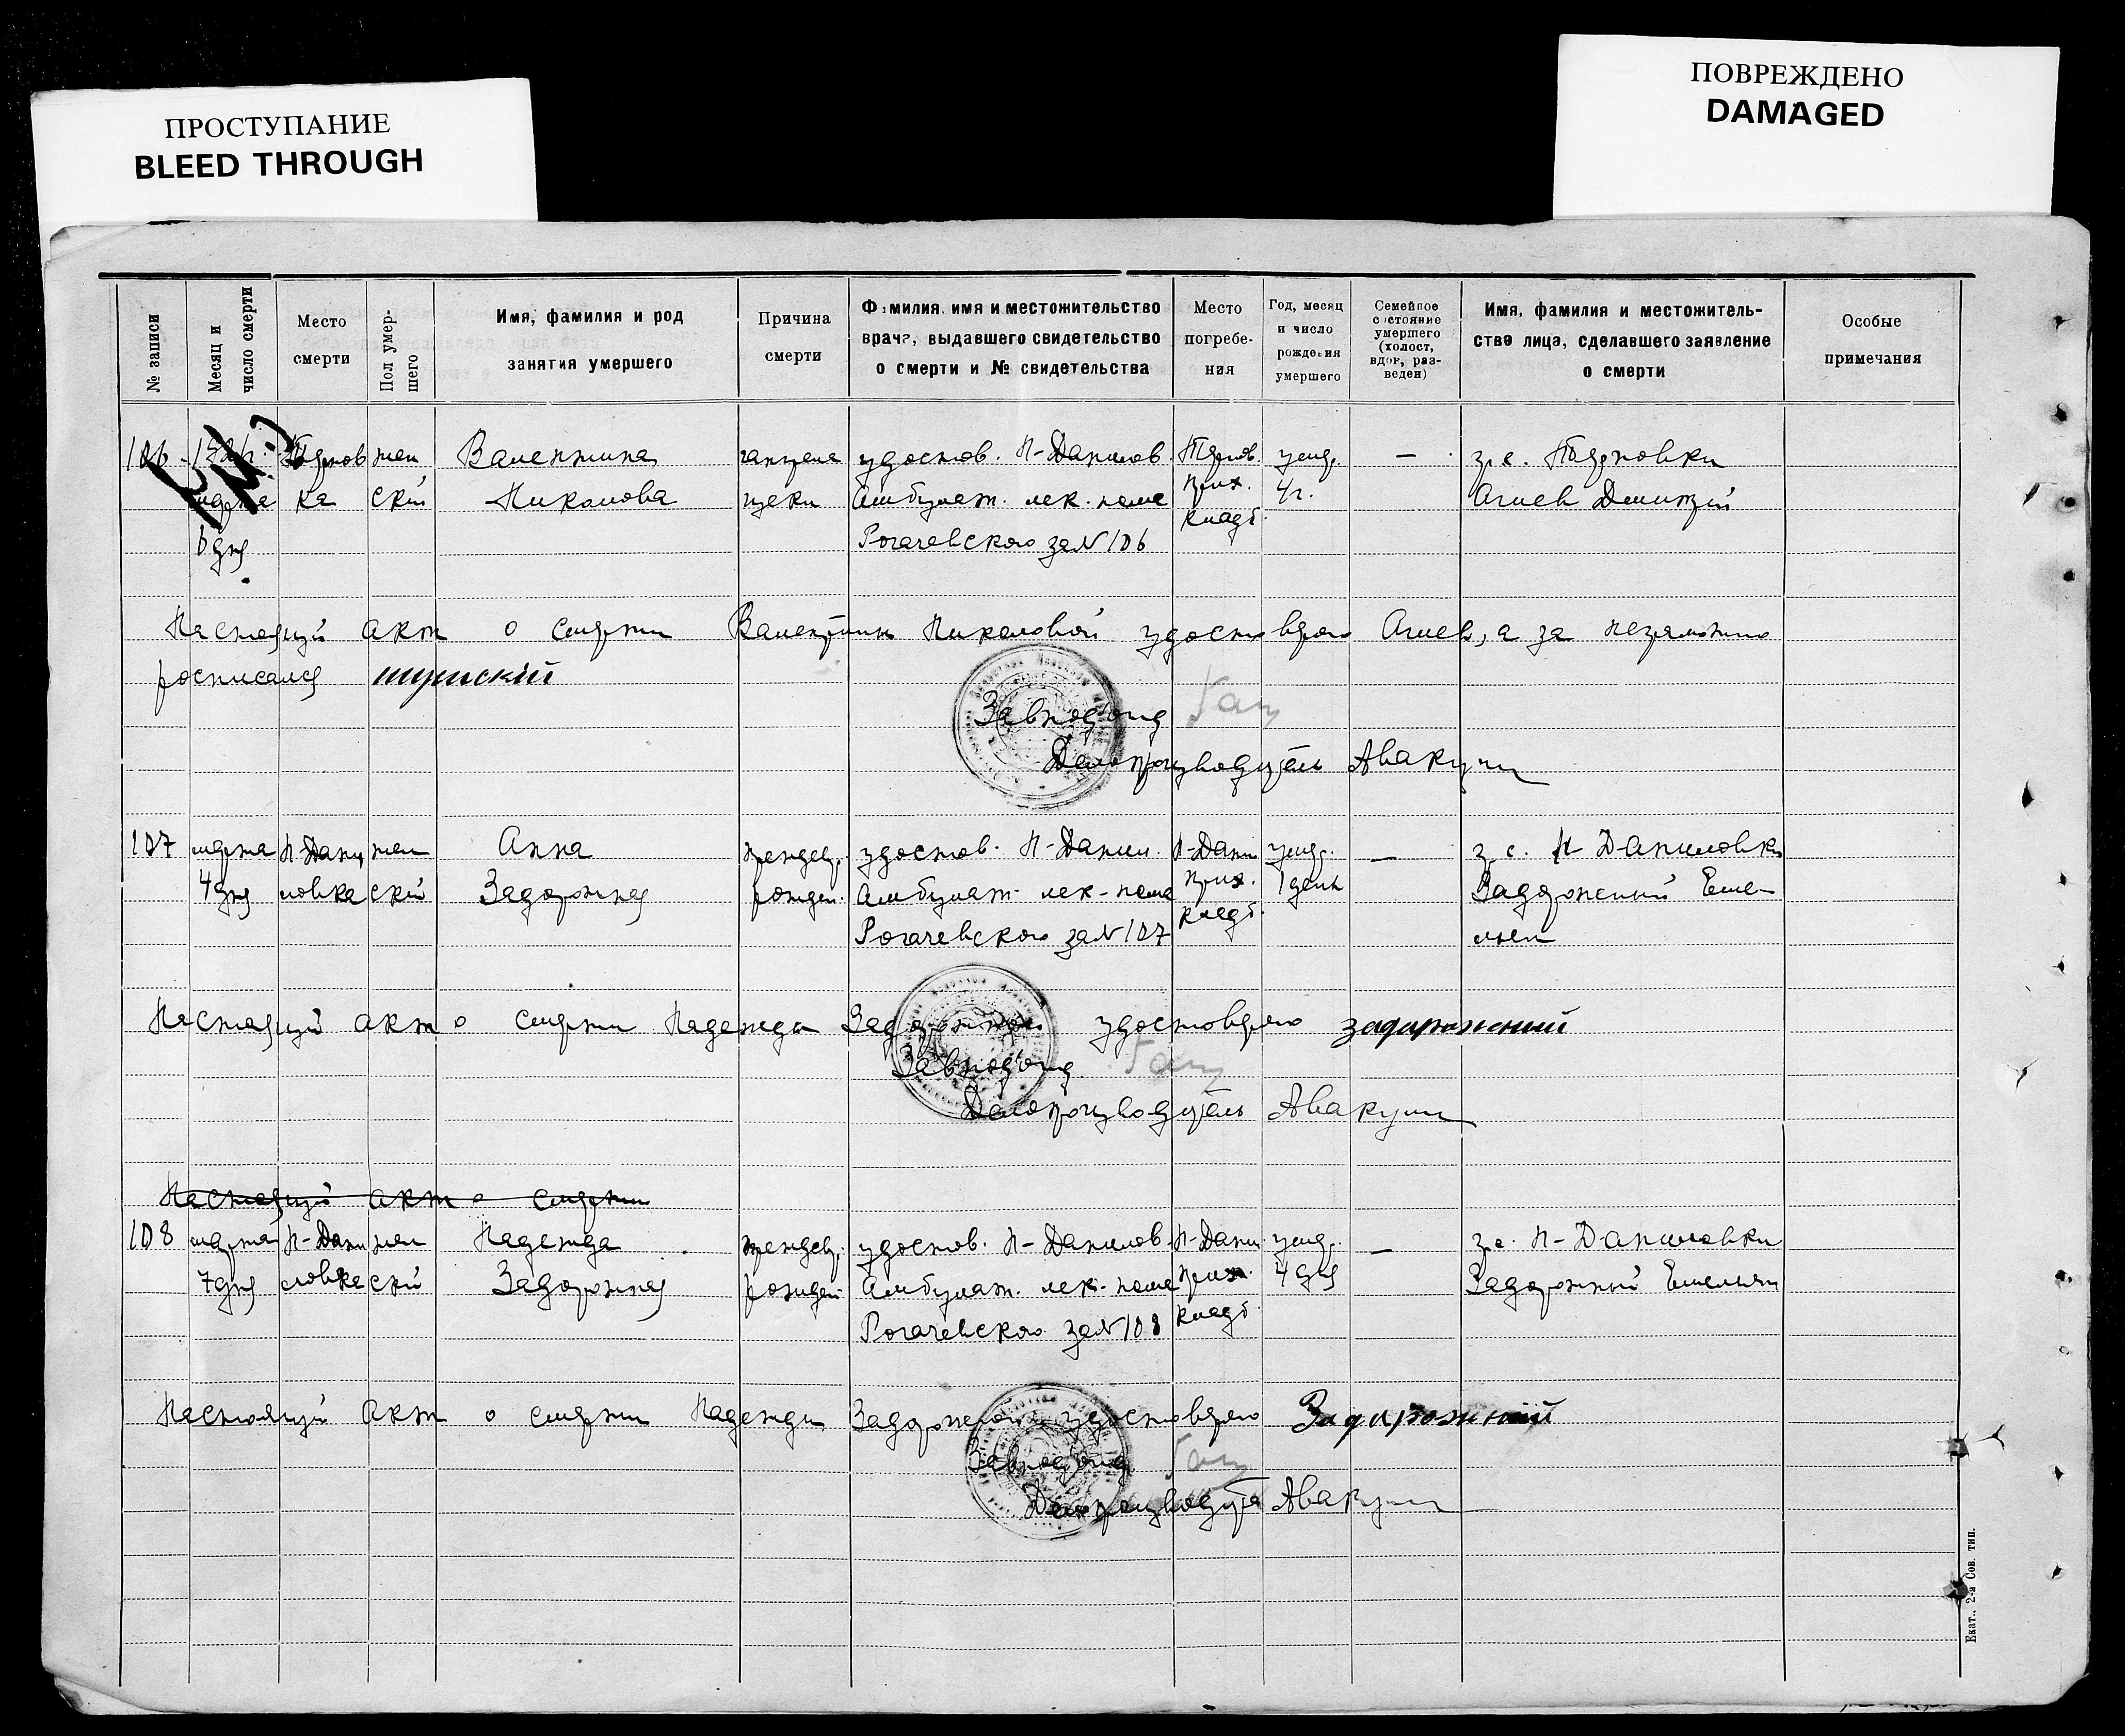 ПРОСТУПАНИЕ
BLEED THROUGH
ПОВРЕЖДЕНО
DAMAGED
№ записи
Месяц и
число смерти
Место
смерти
Пол умер-
шего
Имя, фамилия и род
занятия умершего
Причина
смерти
Фамилия, имя и местожительство
врача, выдавшего свидетельство
о смерти и № свидетельства
Место
погребе-
ния
Год, месяц
и число
рождения
умершего
Семейное
состояние
умершего
(холост,
вдов, раз-
веден)
Имя, фамилия и местожитель-
ство лица, сделавшего заявление
о смерти
Особые
примечания
106
марта
6 дня
Тернов
ка
жен
ский
Валентина
Николова
гангрена
щеки
удостов. Н-Данилов.
Амбулат. лек. пома
Рогачевского за № 106
Тернов.
прих.
кладб.
умер.
4 г.
—
гр. с. Терновки
Агиев Дмитрий
Настоящий акт о смерти Валентины Николовой удостоверяю Агиев, а за неграмотного
росписался
Завподотд
Делопроизводитель Авакумов
107
марта
4 дня
Н-Дани
ловка
жен
ский
Анна
Задорожная
преждевр.
рожден.
удостов. Н-Данил.
Амбулат. лек. пома
Рогачевского за № 107
Н-Дани
прих.
кладб.
умер.
1 день
—
гр. с. Н-Даниловки
Задорожный Емель-
льян
Настоящий акт о смерти Надежды Задорожной удостоверяю задорожний
Завподотд
Делопроизводитель Авакумов
Настоящий акт о смерти
108
марта
7 дня
Н-Дани
ловка
жен
ский
Надежда
Задорожная
преждевр.
рожден.
удостов. Н-Данилов.
Амбулат. лек. пома
Рогачевского за № 108
Н-Дани
прих.
кладб.
умер.
4 дня
—
гр. с. Н-Даниловки
Задорожный Емельян
Настоящий акт о смерти Надежды Задорожной удостоверяю Задорожний
Завподотд
Делопроизводитель Авакумов
Екат., 2-я Сов. тип.